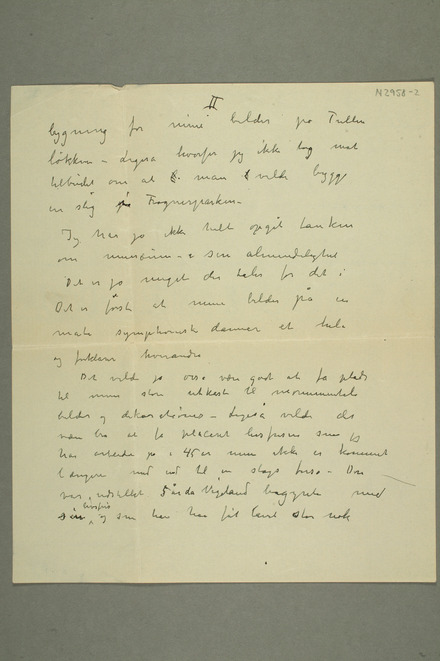 N 2958-2
II
bygning for mine billeder på Tullin
løkken – ligesa hvorfor jeg ikke tog mod
tilbudet om at man vilde bygge
en slig på Frognerparken –
Jeg har jo ikke helt opgit tanken
om museum – i sin almindelighet
Det er jo meget der taler for det i
Det er først at mine billeder på en
måte symphonisk danner et hele
og forklarer hverandre
Det vilde jo osså være godt at få plads
til mine store utkast til monumentale
billeder og dekorationer – Ligeså vilde det
være bra at få placeret livsfrisen som jeg
har arbeidet på i 45 år men ikke er kommet
længere med end til en slags frise – Den
var udstillet før da Vigeland begynte med
sin livsfris og som han har fåt laget stor nok